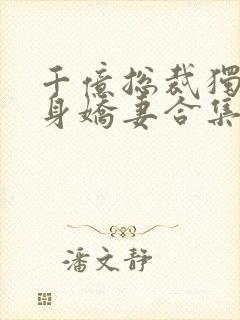 千億总裁獨
身嬌妻合集
潘文静